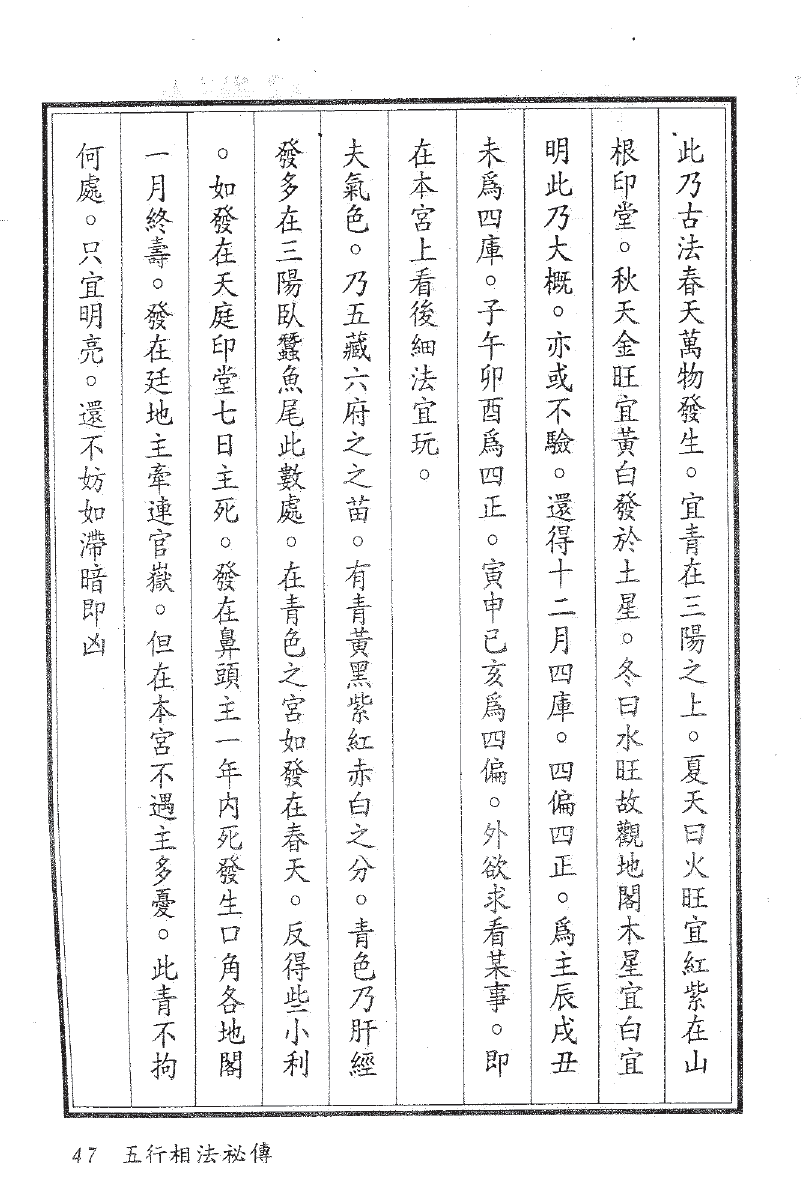 此乃古法春天萬物發生。宜青在三陽之上。夏天曰火旺宜紅紫在山
根印堂。秋天金旺宜黃白發於土星。冬曰水旺故觀地閣木星宜白宜
明此乃大概。亦或不驗。還得十二月四庫。四偏四正。爲主辰戌丑
未爲四庫。子午卯酉爲四正。寅申已亥爲四偏。外欲求看某事。即
在本宮上看後細法宜玩。
夫氣色。乃五藏六府之之苗。有青黃黑紫紅赤白之分。青色乃肝經
發多在三陽臥蠶魚尾此數處。在青色之宮如發在春天。反得些小利
。如發在天庭印堂七日主死。發在鼻頭主一年內死發生口角各地閣
一月終壽。發在廷地主牽連官嶽。但在本宮不遇主多憂。此青不拘
何處。只宜明亮。還不妨如滯暗即凶
47 五行相法祕傳